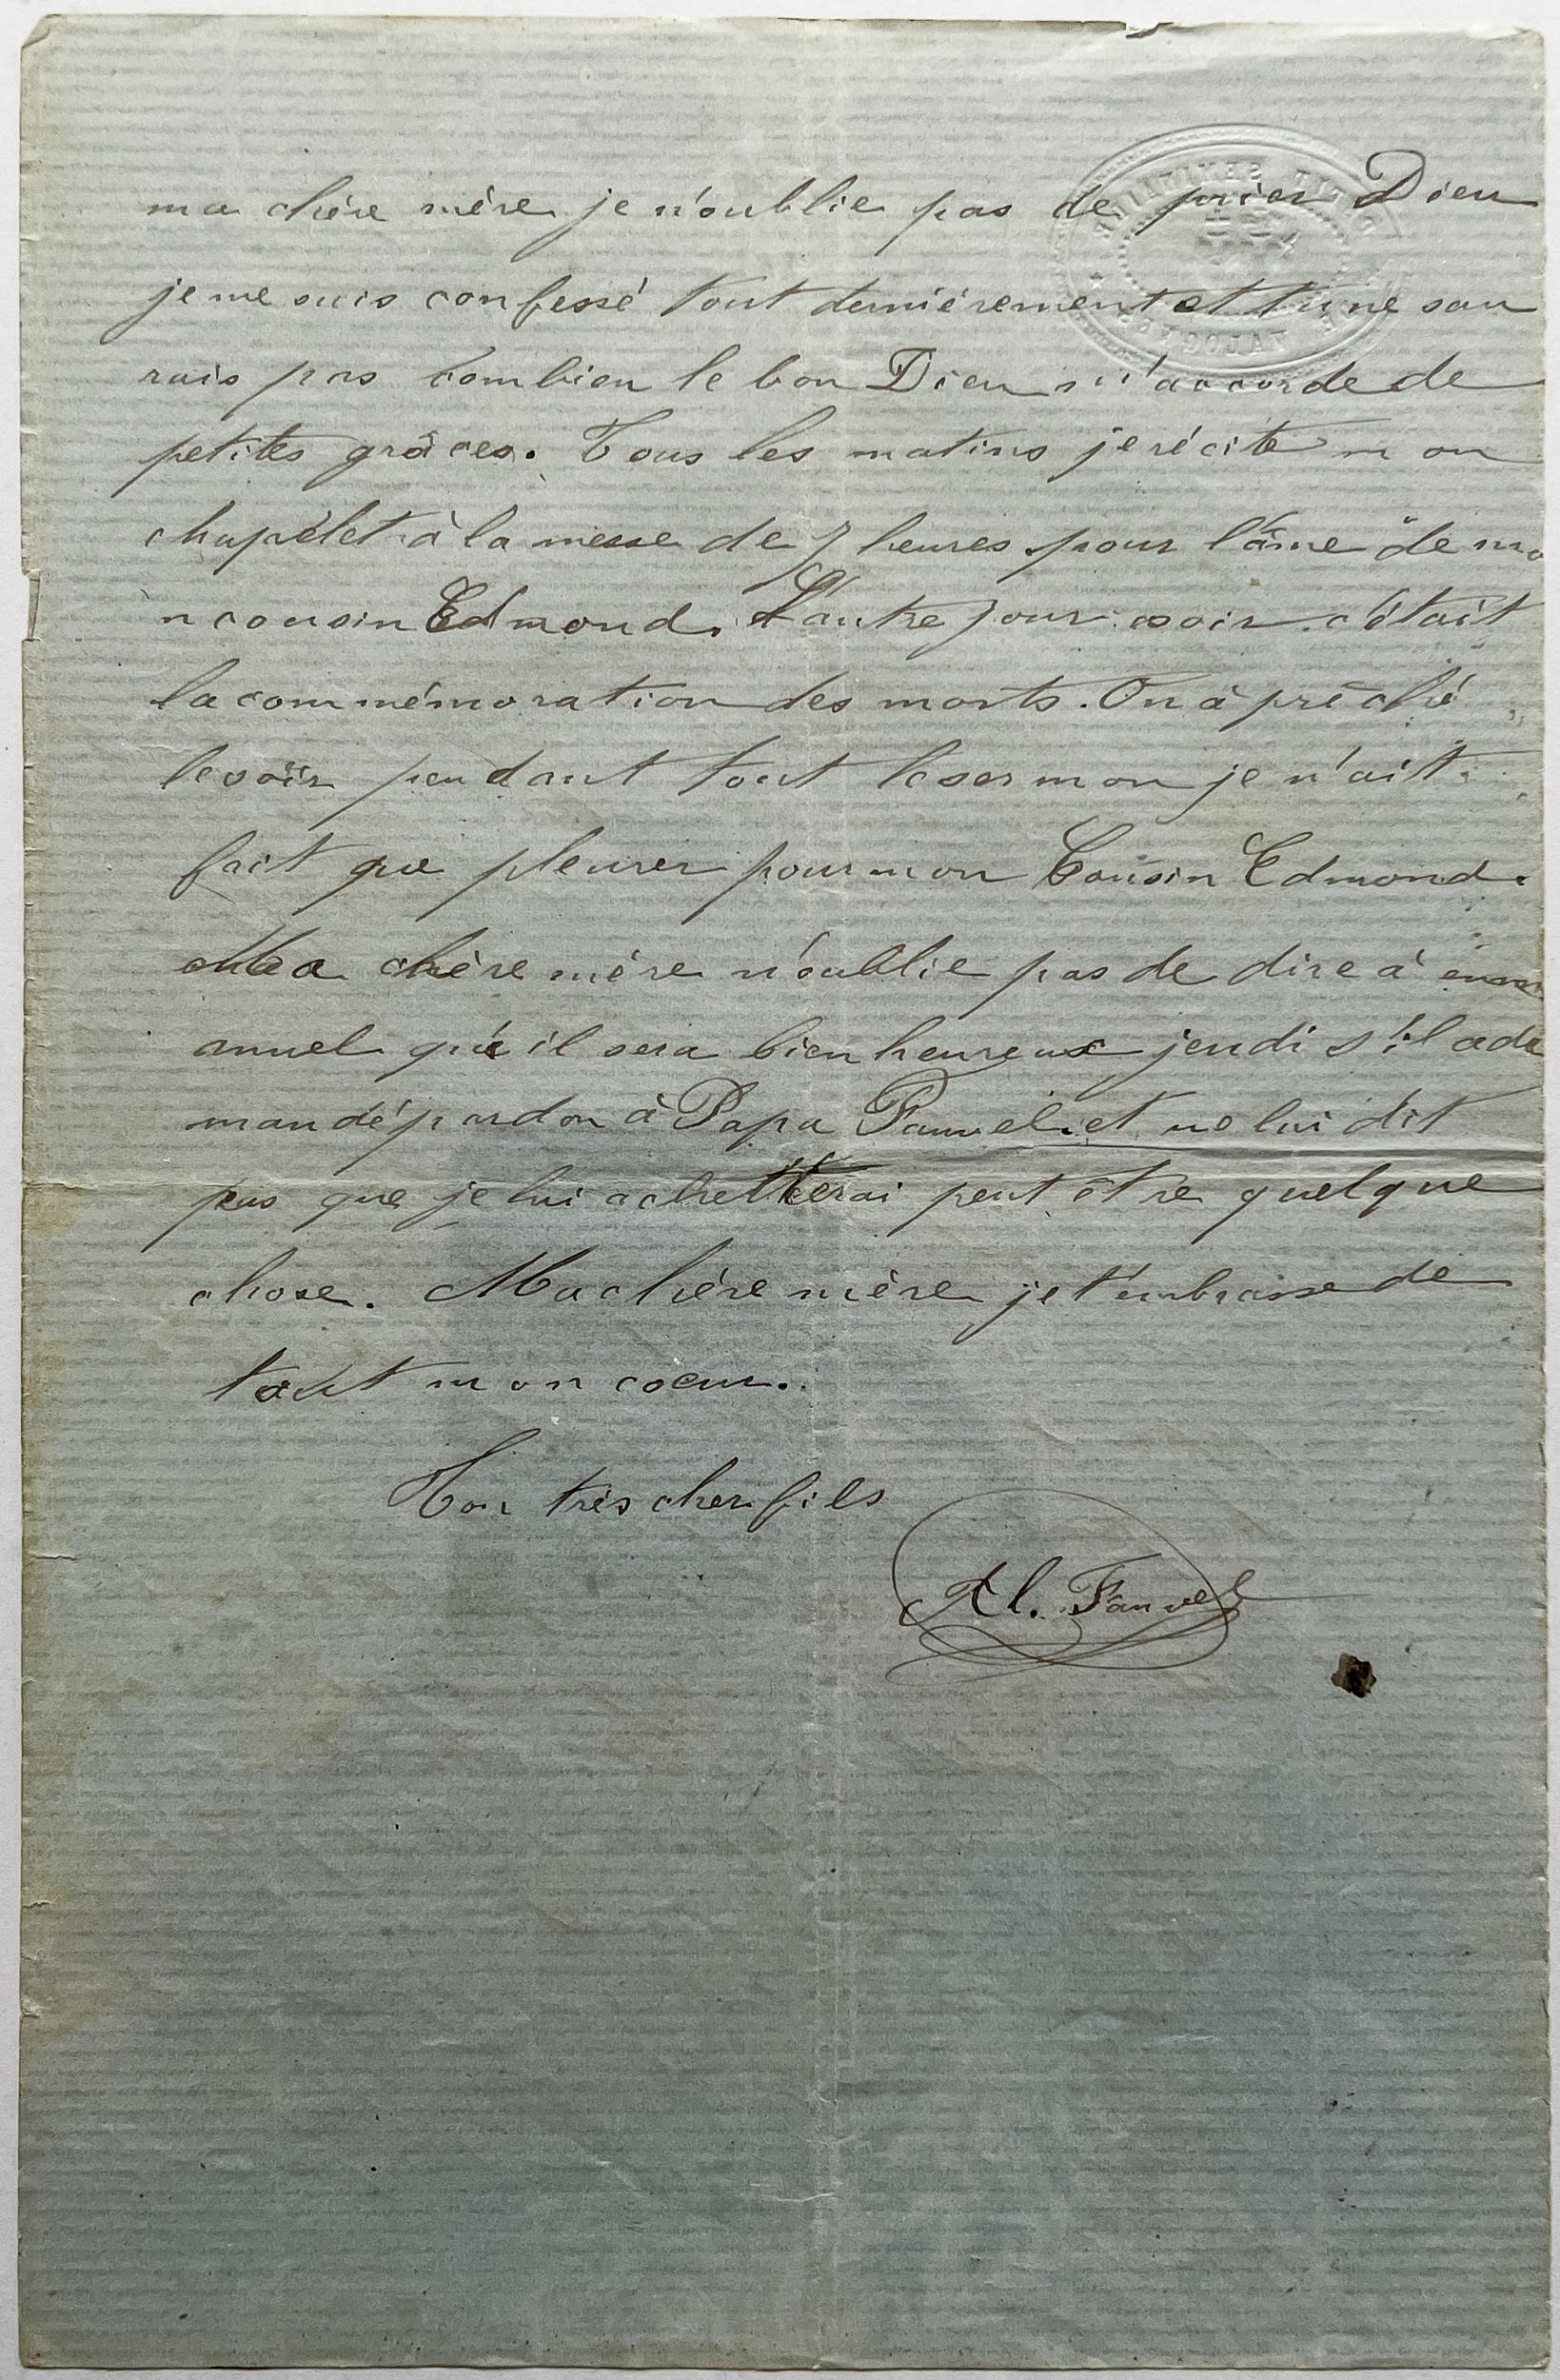 ma chère mère je n'oublie pas de prier Dieu
je me suis confessé tout dernièrement et tu ne sau
rais pas combien le bon Dieu m'accorde de
petites grâces. Tous les matins je récite mon
chapélet à la messe de 7 heures pour l'âme de mo
n cousin Edmond. L'autre jour soir c'était
la commémoration des morts. On à prêché
le soir pendant tout le sermon je n'ait
fait que pleurer pour mon Cousin Edmond.
Ma chère mère n'oublie pas de dire à emm
anuel qu'il sera bien heureux jeudi s'il a de
mandé pardon à Papa Fauvel et ne lui dit
pas que je lui achetterai peut être quelque
chose. Ma chère mère je t'embrasse de
tout mon coeur.
Ton très cher fils
Al. Fauvel